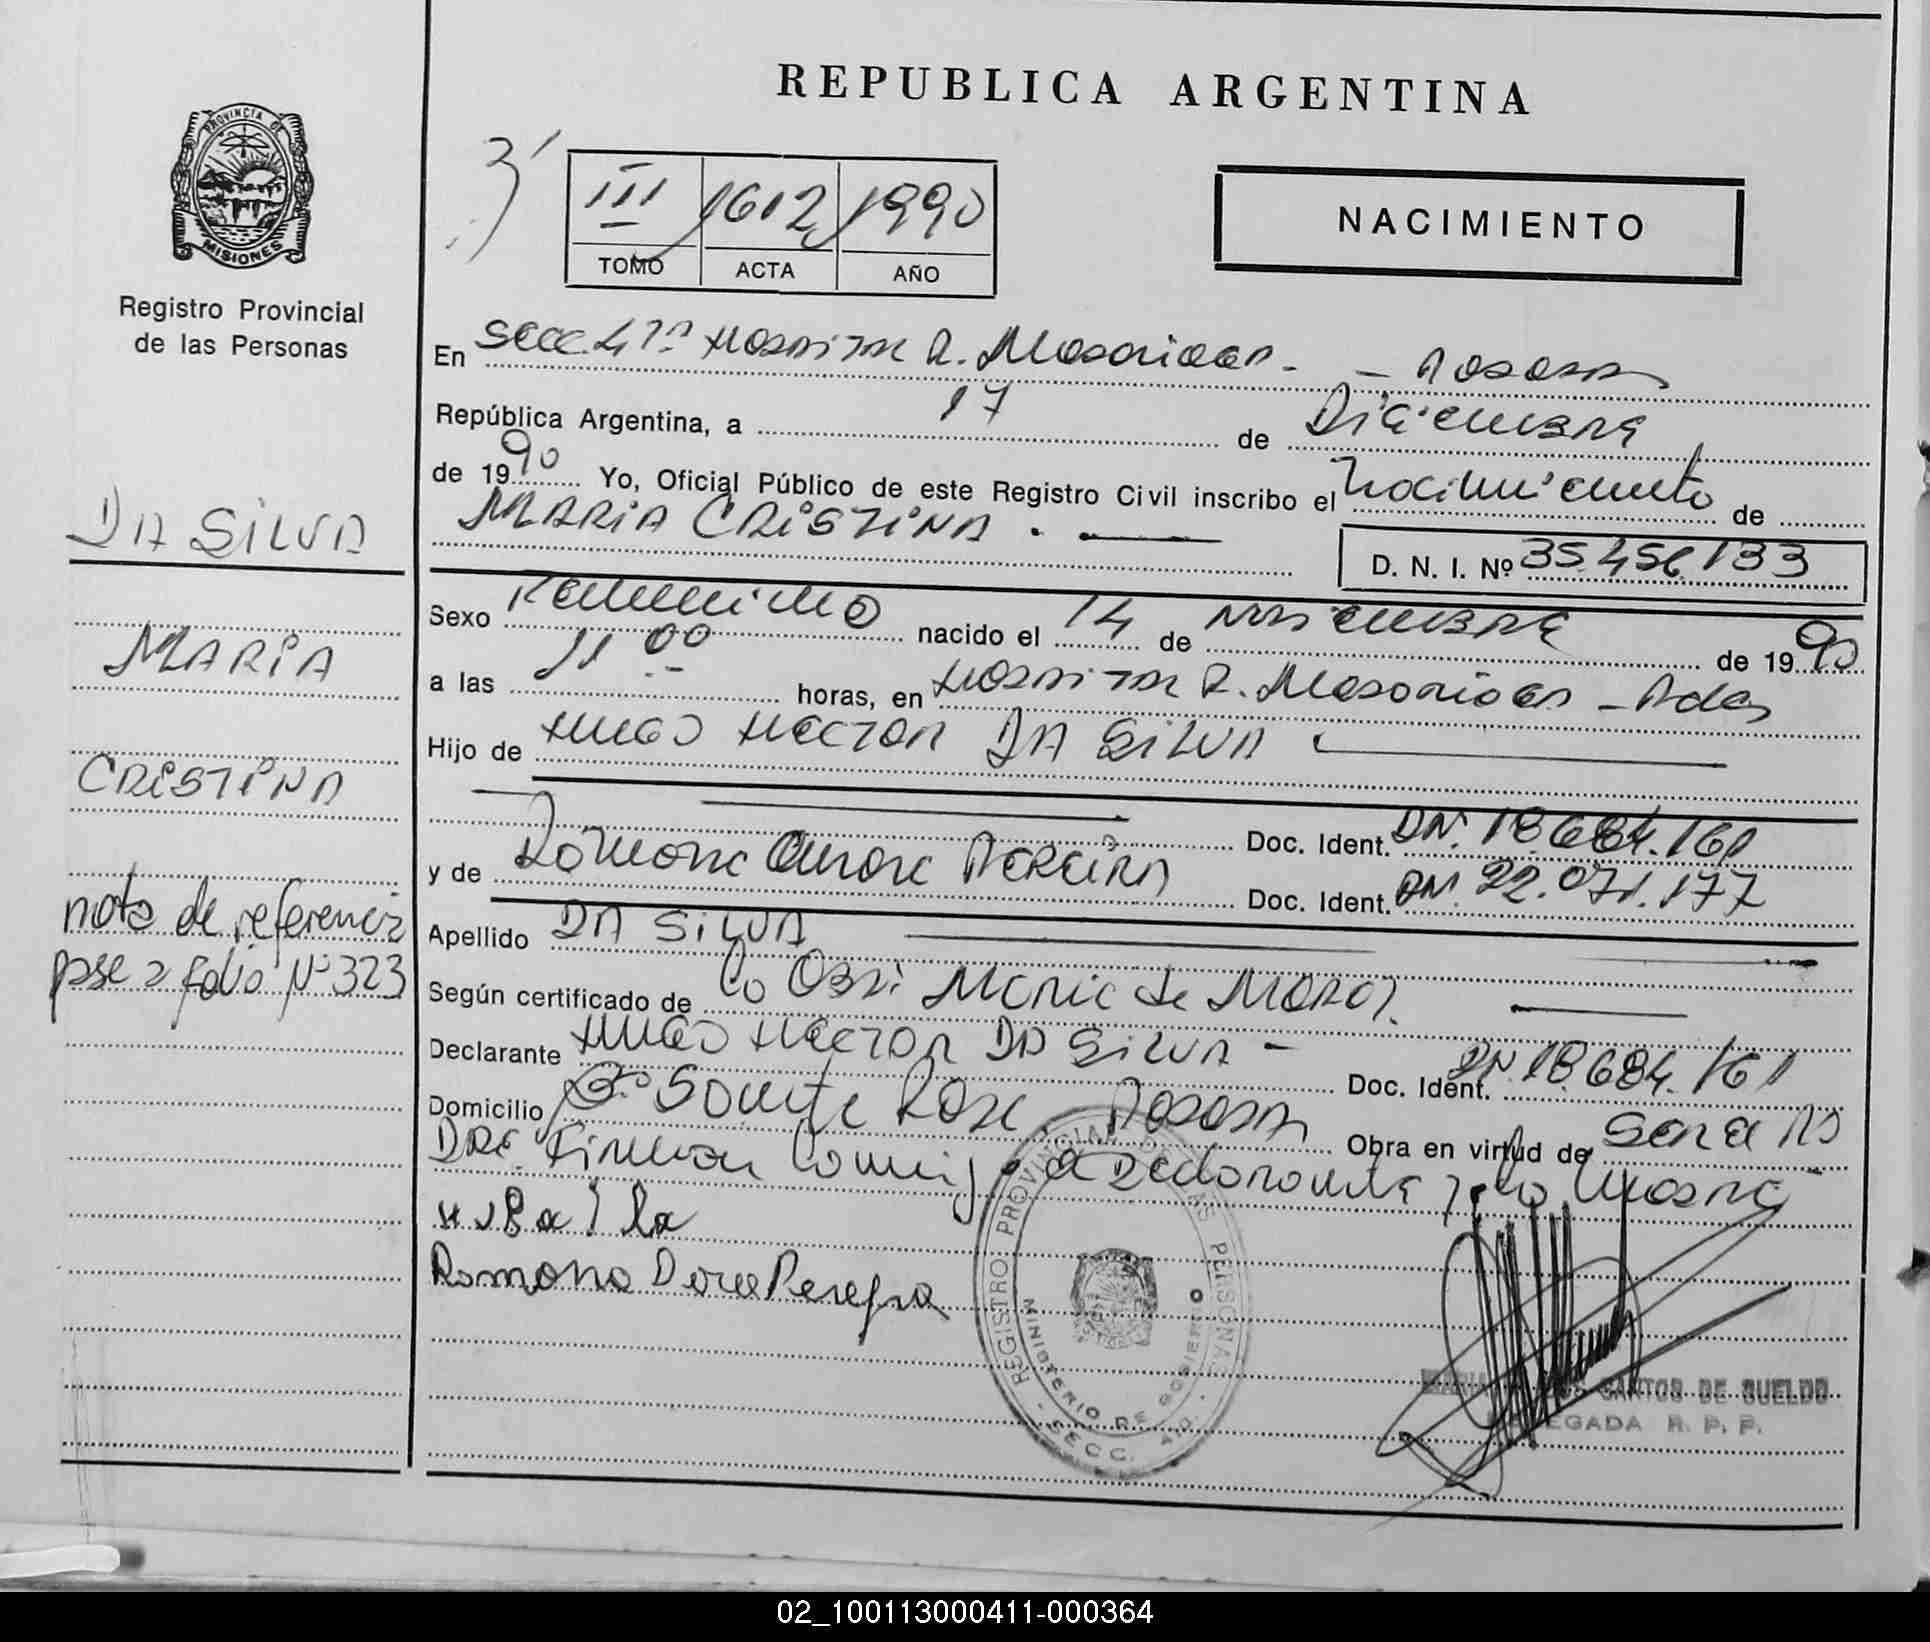 REPUBLICA ARGENTINA
PROVINCIA DE
MISIONES
Registro Provincial
de las Personas
III 1612 1990
TOMO ACTA AÑO
NACIMIENTO
En Secc. 4ta Hospital R. Madariaga. - Posadas
República Argentina, a 17 de Diciembre
de 1990 Yo, Oficial Público de este Registro Civil inscribo el Nacimiento de
MARIA CRISTINA . —
D. N. I. Nº 35.456.133
Sexo Femenino nacido el 14 de Noviembre de 1990
a las 11 00 horas, en Hospital R. Madariaga - Pdas
Hijo de HUGO HECTOR DA SILVA
Doc. Ident. DNI. 18.684.161
y de Ramona Aurora PEREIRA Doc. Ident. DNI. 22.071.177
Apellido DA SILVA
Según certificado de la Obst. Maria de
Declarante HUGO HECTOR DA SILVA - Doc. Ident. DNI. 18.684.161
Domicilio Bº Santa Rosa Posadas Obra en virtud de
Firman Conmigo el Declarante y la Madre
Ramona Perejra
DA SILVA
MARIA
CRISTINA
nota de referencia
pase a folio Nº 323
REGISTRO PROVINCIAL DE LAS PERSONAS
MINISTERIO DE GOBIERNO
- SECC. 4ta. -
SANTOS DE SUELDO
DELEGADA R. P. P.
02_100113000411-000364